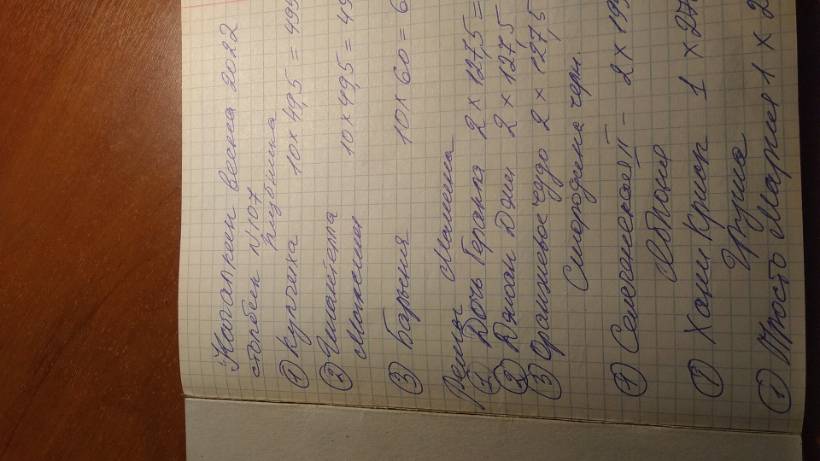 Качалкин весна 2022
столбик N107
Клубника
① Купчиха 10 × 49,5 = 495
② Гигантелла
Максим 10 × 49,5 = 49
③ Барыня 10 × 60 = 6
Малина
① Дочь Геракла 2 × 127,5 =
② Джоан Джи 2 × 127,5
③ Оранжевое чудо 2 × 127,5
Смородина черн.
① Селеченская II - 2 × 19
Яблоня
① Хани Крисп 1 × 27
Груша
① Просто Мария 1 × 2